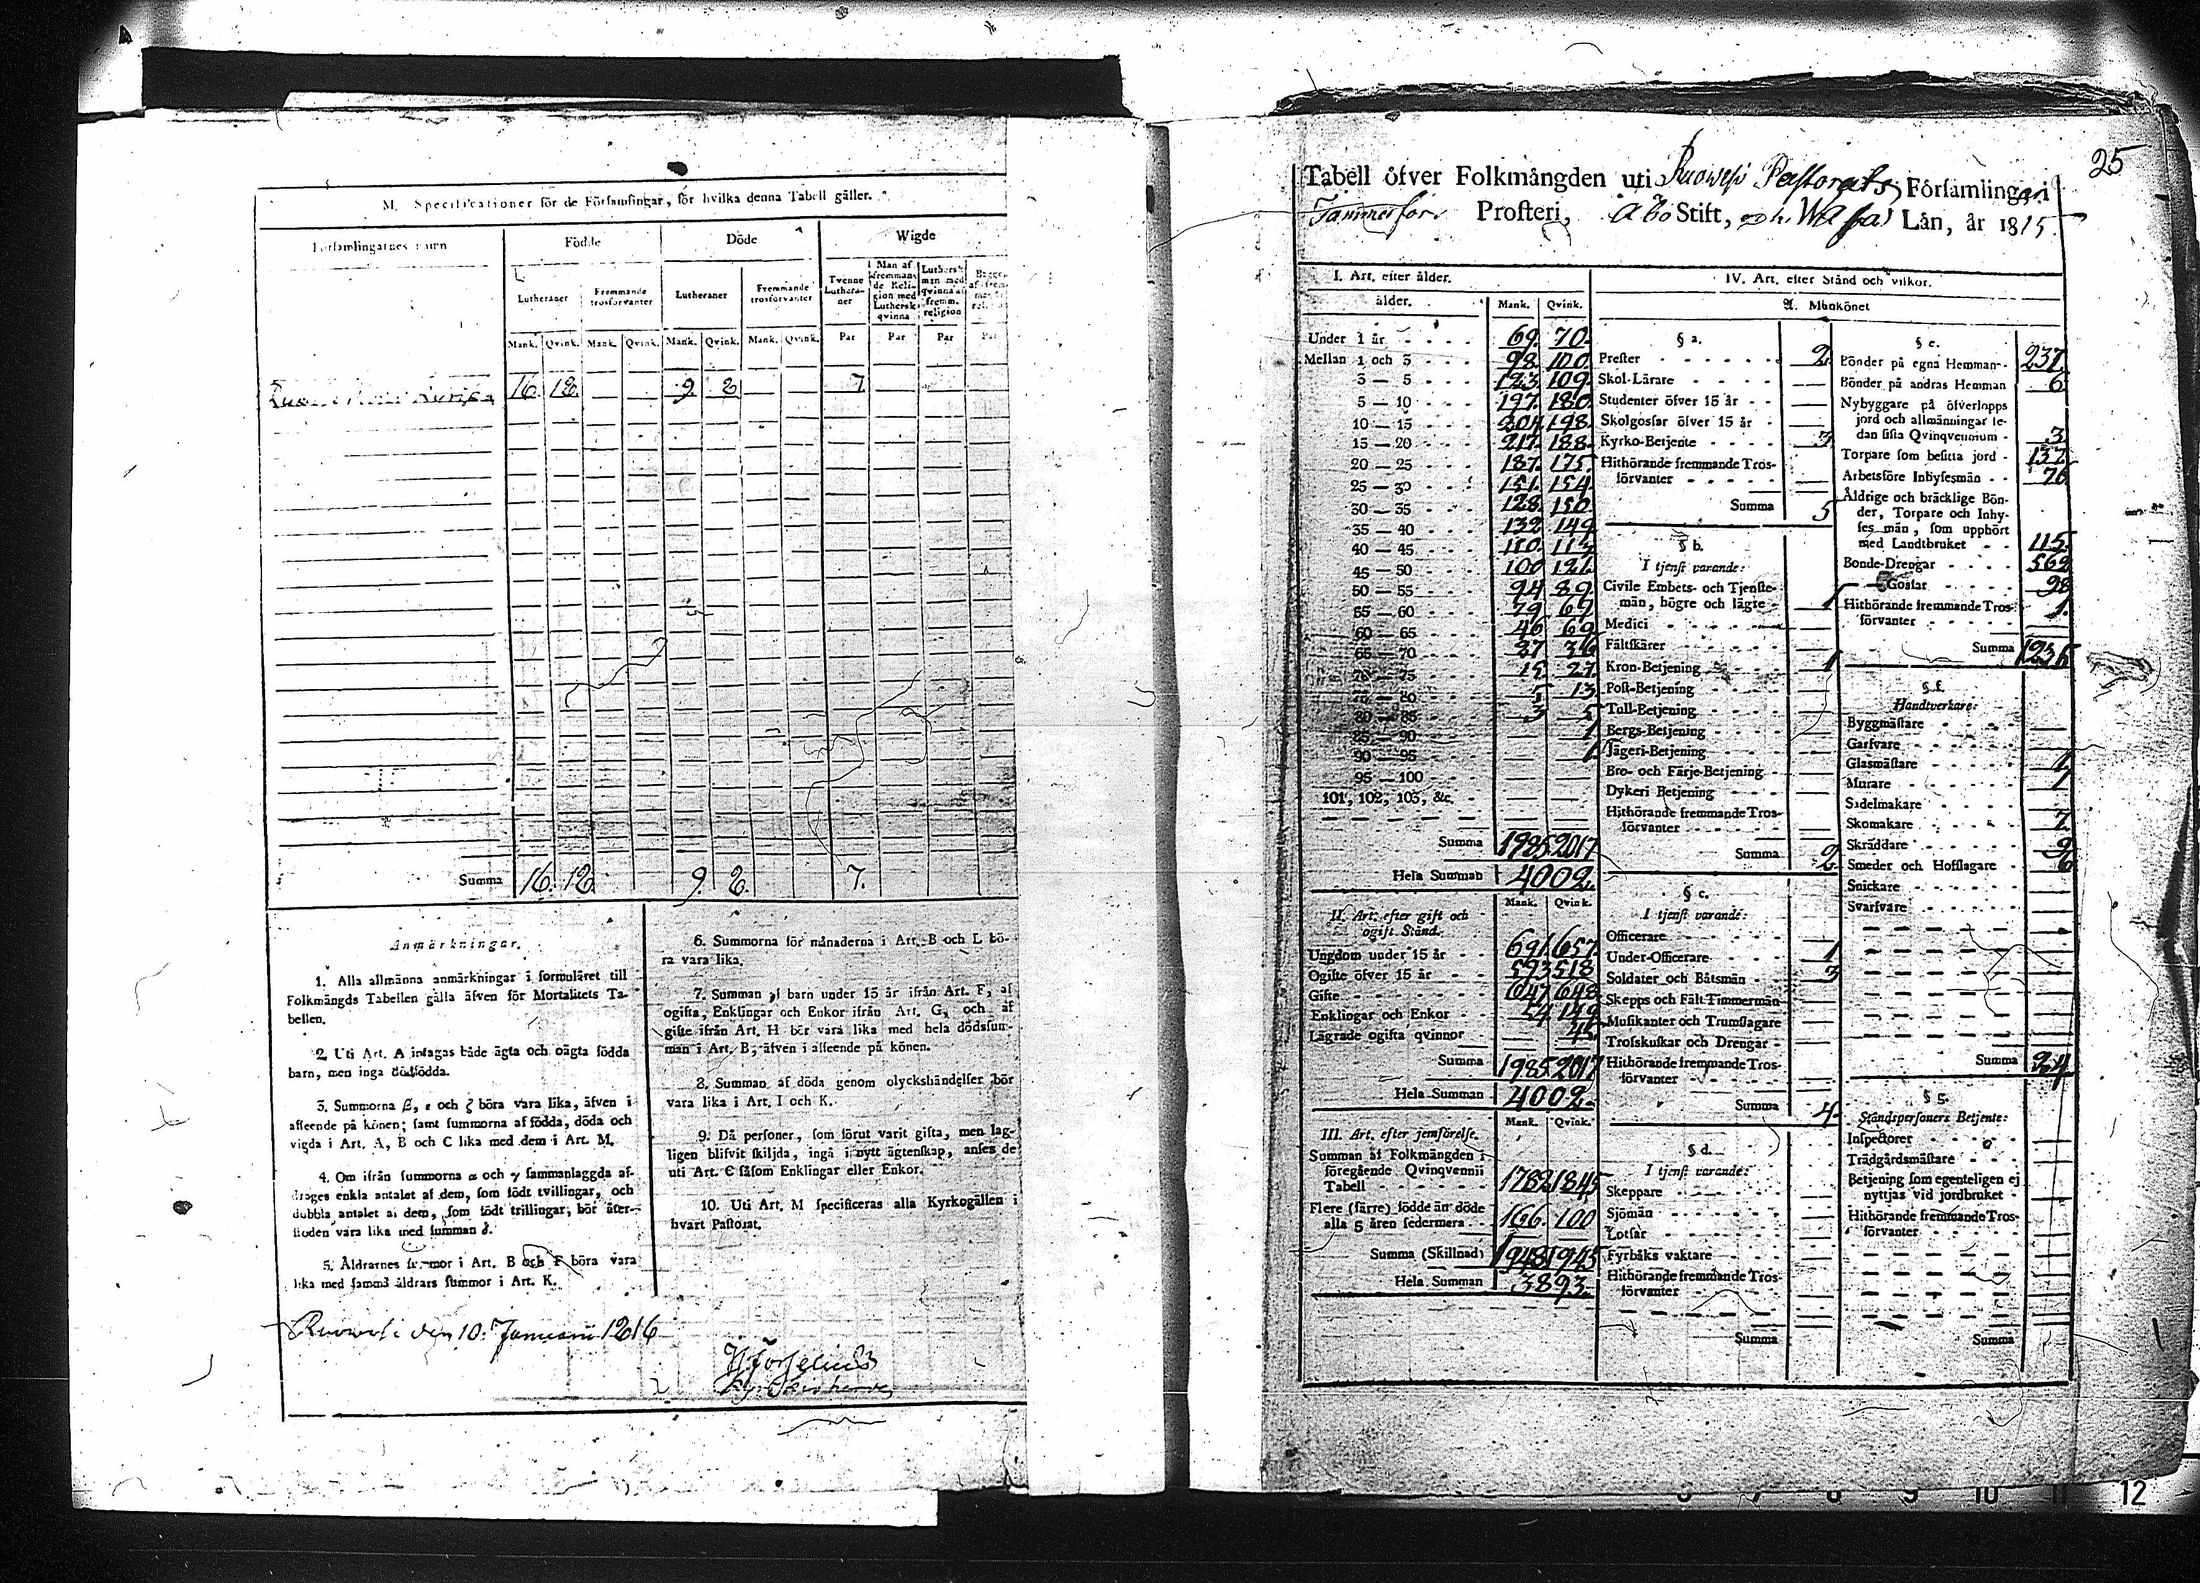 M. Specificationer för de Församlingar, för hvilka denna Tabell gäller.
Församlingarnes namn
Födde
Döde
Wigde
Lutheraner
Fremmande trosförvanter
Lutheraner
Fremmande trosförvanter
Tvenne Lutheraner
1 Man af fremmande Religion med Luthersk qvinna
Luthersk man med qvinna af fremm. religion
Mank. Qvink. Mank. Qvink. Mank. Qvink. Mank. Qvink. Par Par Par Par
16. 18. 9. 2 7.
Summa 16. 18. 9. 2. 7.
Anmärkningar.
1. Alla allmänna anmärkningar i formuläret till
Folkmängds Tabellen gälla äfven för Mortalitets Ta-
bellen.
2. Uti Art. A intagas både ägta och oägta födda
barn, men inga dödfödda.
3. Summorna β, ε och ζ böra vara lika, äfven i
afseende på könen; samt summorna af födda, döda och
vigda i Art. A, B och C lika med dem i Art. M.
4. Om ifrån summorna α och γ sammanlaggda af-
drages enkla antalet af dem, som födt tvillingar, och
dubbla antalet af dem, som födt trillingar, bör åter-
stoden vara lika med summan δ.
5. Åldrarnes summor i Art. B och F böra vara
lika med samma åldrars summor i Art. K.
6. Summorna för månaderna i Art. B och L bö-
ra vara lika.
7. Summan af barn under 15 år ifrån Art. F, af
ogifta, Enklingar och Enkor ifrån Art. G, och af
gifte ifrån Art. H bör vara lika med hela dödssum-
man i Art. B, äfven i afseende på könen.
8. Summan af döda genom olyckshändelser bör
vara lika i Art. I och K.
9. Då personer, som förut varit gifta, men lag-
ligen blifvit skiljda, ingå i nytt ägtenskap, anses de
uti Art. C såsom Enklingar eller Enkor.
10. Uti Art. M specificeras alla Kyrkogällen i
hvart Pastorat.
Ruowesi den 10. Januarii 1816
25
Tabell öfver Folkmängden uti Ruowesi Pastorats Församlingar i
Tammerfors Prosteri, Åbo Stift, och Wasa Län, år 1815.
I. Art. efter ålder.
ålder. Mank. Qvink.
Under 1 år 69. 70.
Mellan 1 och 3 98. 100.
3 — 5 123. 109.
5 — 10 197. 180.
10 — 15 204. 198.
15 — 20 217. 188.
20 — 25 187. 175.
25 — 30 151. 154.
30 — 35 128. 150.
35 — 40 132. 149.
40 — 45 110. 113
45 — 50 100. 121.
50 — 55 94 89.
55 — 60 79 67
60 — 65 46 69
65 — 70 27 36
70 — 75 15 27
75 — 80 5 13
80 — 85 3 5
85 — 90 1
90 — 95 1
95 — 100
101, 102, 103, &c.
Summa 1985. 2017
Hela Summan 4002.
Mank. Qvink.
II. Art. efter gift och
ogift Stånd.
Ungdom under 15 år 691. 657.
Ogifte öfver 15 år 593 518
Gifte 647 648
Enklingar och Enkor 54 149
Lägrade ogifta qvinnor 45
Summa 1985 2017
Hela Summan 4002.
Mank. Qvink.
III. Art. efter jemförelse.
Summan af Folkmängden i
föregående Qvinqvennii
Tabell 1782 1845
Flere (färre) födde än döde
alla 5 åren sedermera 166. 100
Summa (Skillnad) 1948 1945
Hela Summan 3893.
IV. Art. efter Stånd och vilkor.
A. Mankönet
§ a.
Prester 2.
Skol-Lärare
Studenter öfver 15 år
Skolgossar öfver 15 år
Kyrko-Betjente 3
Hithörande fremmande Tros-
förvanter
Summa 5
§ b.
I tjenst varande:
Civile Embets- och Tjenste-
män, högre och lägre 1
Medici
Fältskärer
Kron-Betjening 1
Post-Betjening
Tull-Betjening
Bergs-Betjening
Jägeri-Betjening
Bro- och Färje-Betjening
Dykeri Betjening
Hithörande fremmande Tros-
förvanter
Summa 2
§ c.
I tjenst varande:
Officerare
Under-Officerare 1
Soldater och Båtsmän 3
Skepps och Fält Timmermän
Musikanter och Trumslagare
Trosskuskar och Drengar
Hithörande fremmande Tros-
förvanter
Summa 4.
§ d.
I tjenst varande:
Skeppare
Sjömän
Lotsar
Fyrbåks vaktare
Hithörande fremmande Tros-
förvanter
Summa
§ e.
Bönder på egna Hemman 237
Bönder på andras Hemman 6
Nybyggare på öfverlopps
jord och allmänningar se-
dan sista Qvinqvennium 3
Torpare som besitta jord 137
Arbetsföre Inhysesmän 76
Åldrige och bräcklige Bön-
der, Torpare och Inhy-
ses män, som upphört
med Landtbruket 115
Bonde-Drengar 562
Gossar 98
Hithörande fremmande Tros-
förvanter 1.
Summa 1235
§ f.
Handtverkare:
Byggmästare
Garfvare
Glasmästare 1
Murare 1
Sadelmakare
Skomakare 7.
Skräddare 9
Smeder och Hofslagare 6
Snickare
Svarfvare
Summa 24
§ g.
Ståndspersoners Betjente:
Inspectorer
Trädgårdsmästare
Betjening som egenteligen ej
nyttjas vid jordbruket
Hithörande fremmande Tros-
förvanter
Summa
8 9 10 11 12